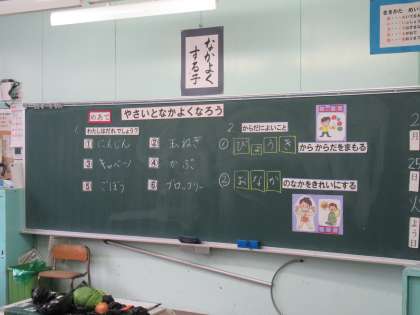 なかよく
する子
めあて やさいとなかよくなろう
1. わたしはだれでしょう?
① にんじん ② たまねぎ
③ キャベツ ④ かぶ
⑤ ごぼう ⑥ ブロッコリー
2. からだによいこと
① びょうき から からだをまもる
② おなか のなかをきれいにする
2
月
25
日
火
よう日